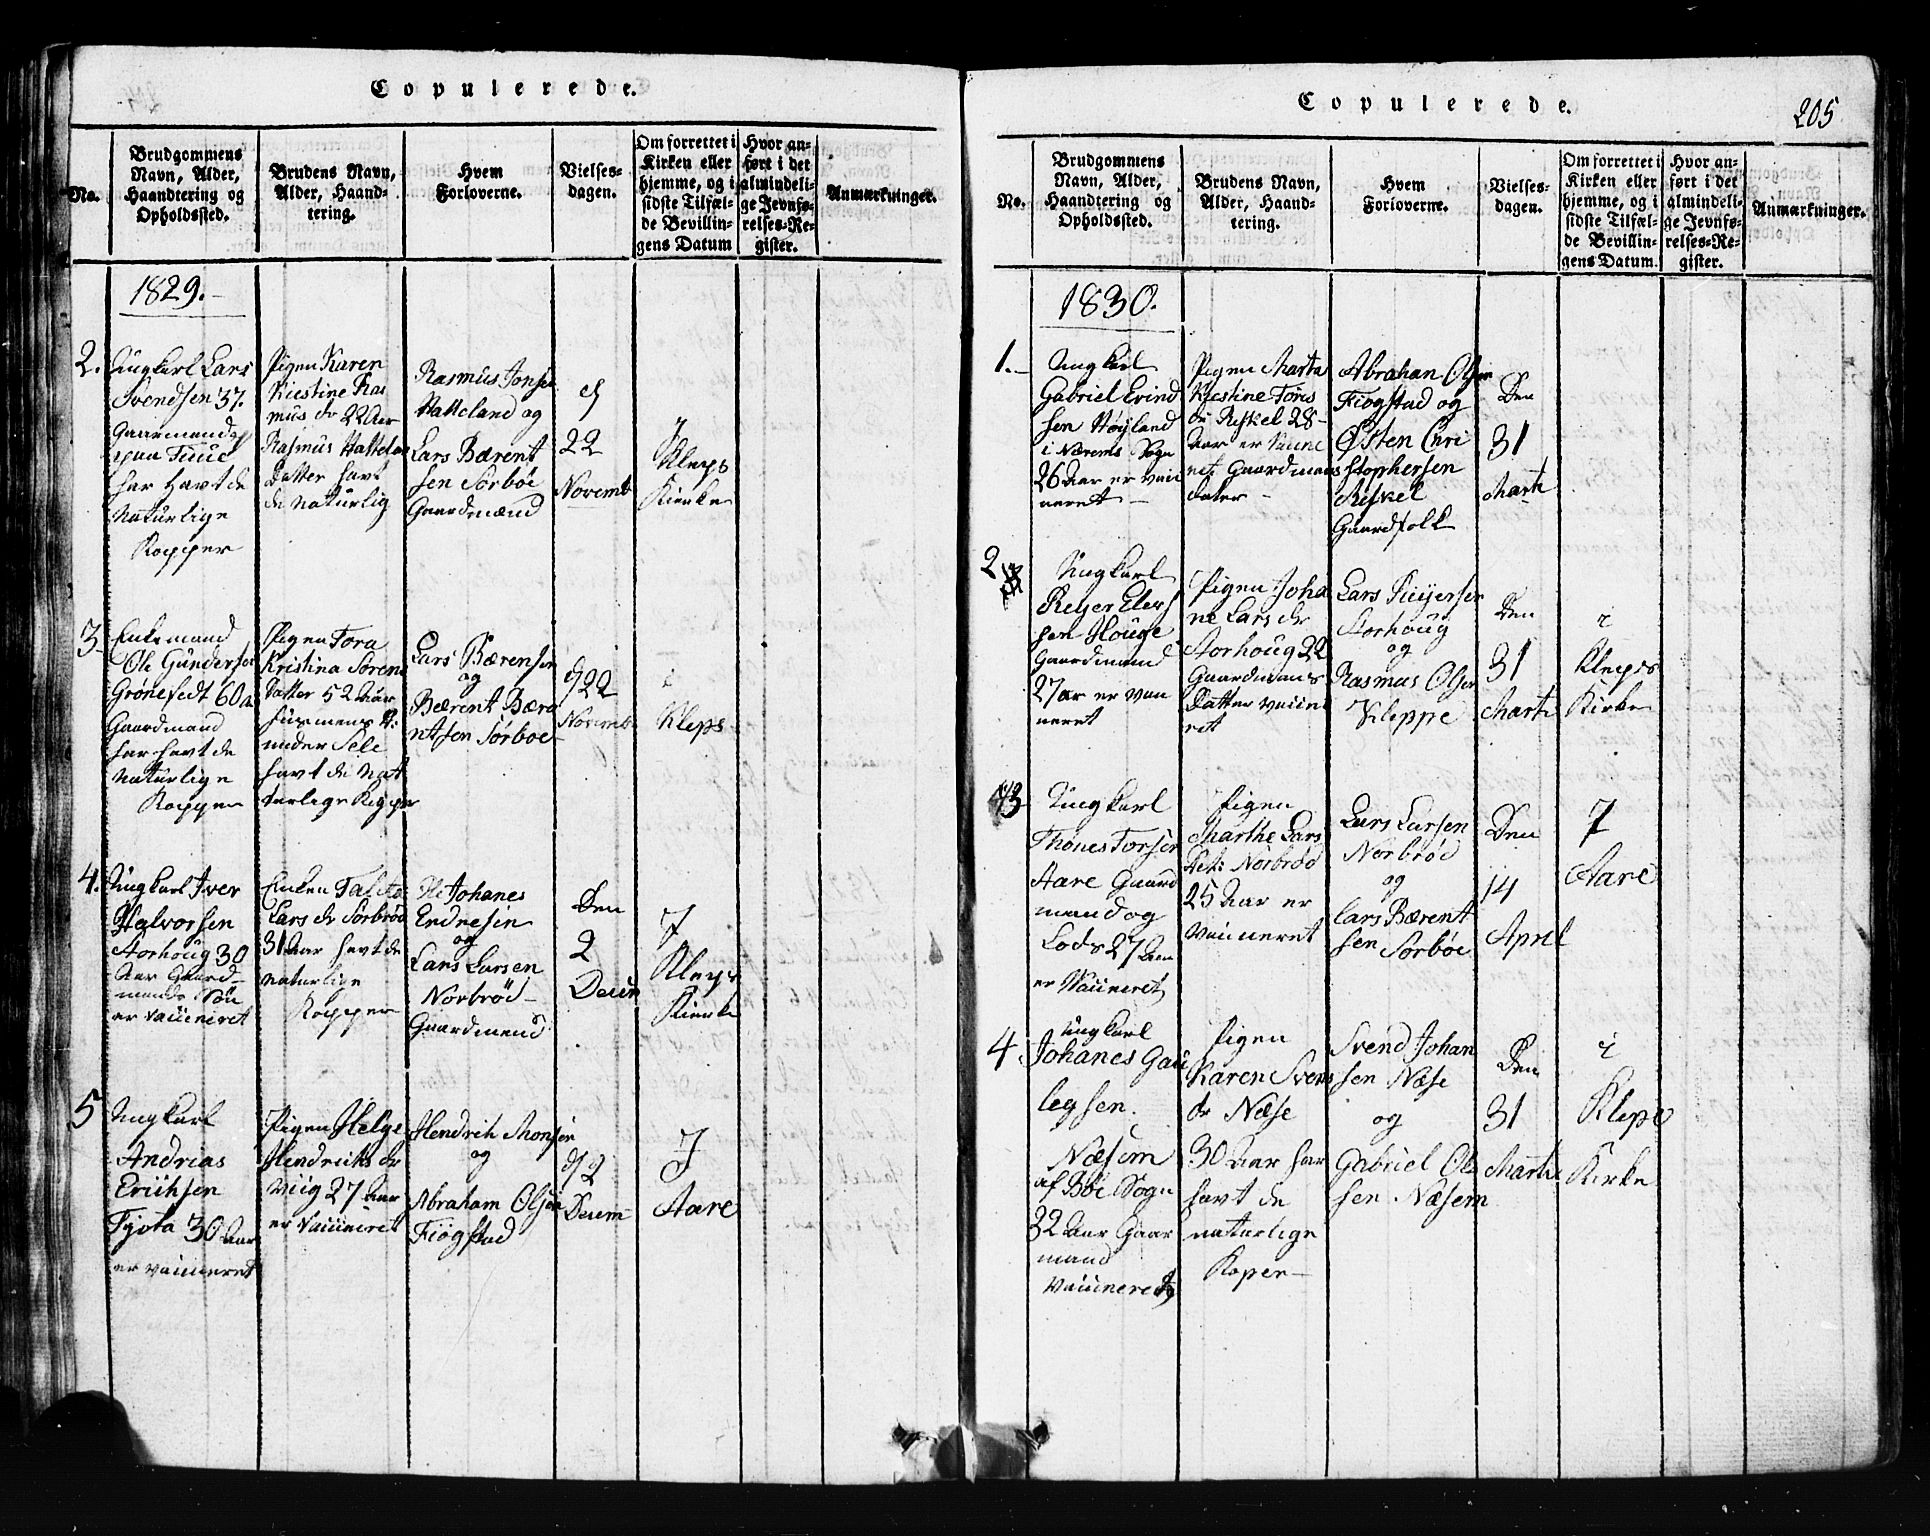 Copulerede.
No.
Brudgommens
Navn, Alder,
Haandtering og
Opholdssted.
Brudens Navn,
Alder, Haand-
tering.
Hvem
Forloverne.
Vielses-
dagen.
Om forrettet i
Kirken eller
hjemme, og i
sidste Tilfæl-
de Bevillin-
gens Datum
Hvor an-
ført i det
almindeli-
ge Jevnfø-
relses-Re-
gister.
Anmærkninger.
1829.
2.
Ungkarl Lars
Svendsen 37.
Gaarmand
har havt de
Naturlige
Kopper
Pigen Karen
Kiestine Ras
mus dr 22 Aar
Rasmus
Datter havt
de naturlig
Rasmus Jonsen
Hatteland og
Lars Bærent
sen Sørbøe
Gaardmænd
22
Novemb
Kleps
Kierke
3
Enkemand
Ole Gunderse
Grønefedt 60
Gaardmand
har havt de
Naturlige
Kopper
Pigen Tora
Kristina Søren
Datter 52 Aar
under Sele
havt de Nat
turlige Kopper
Lars Bærensen
og
Beerent Bære
ntsen Sørboe
d 22
Novemb
i
Kleps
4.
Ungkarl Iver
Halvorsen
Storhoug 30
Aar Gaard-
mands Søn
er vaiineret
Enken
Lars dr Sørbrød
31 Aar havt de
naturlige
Kopper
Johanes
Endresen
og
Lars Larsen
Norbrød
Gaardmend
Den
2
Decem
I
Kleps
Kierke
5
Ungkarl
Andrias
Eriihsen
Tjota 30 Aar
er vaiineret
Pigen Helge
Hendriks dr
Viig 27 Aar
er Vaiineret
Hendrik Monsen
og
Abraham Olsen
Fiøgstad
d 2
Decem
I
Aare
Copulerede.
205
No.
Brudgommens
Navn, Alder,
Haandtering og
Opholdssted.
Brudens Navn,
Alder, Haand-
tering.
Hvem
Forloverne.
Vielses-
dagen.
Om forrettet i
Kirken eller
hjemme, og i
sidste Tilfæl-
de Bevillin-
gens Datum.
Hvor an-
ført i det
almindeli-
ge Jevnfø-
relses-Re-
gister.
Anmærkninger.
1830.
1.
Ungkarl
Gabriel Evind
sen Høyland
i Nærems Sogn
26 Aar er vaii
neret
Pigen Marta
Kiestine Tøres
dr Reskel 28
Aar er Vaiine
ret Gaardmans
dater
Abrahan Olsen
Fiogstad og
Østen Chri
stophersen
Reskel
Gaardfolk
Den
31
Marti
2
Ungkarl
Reijer Elers
sen Houge
Gaardmand
27 ar er vaii
neret
Pigen Joha
ne Lars dr
Storhoug 22
Gaardmans
Datter vaiine
ret
Lars Reijersen
Storhoug
og
Rasmus Olsen
Kleppe
Den
31
Marti
i
Kleps
Kirke
3
Ungkarl
Thønes Torsen
Aare Gaard
mand og
Lods 27 Aar
er Vaiineret
Pigen
Marthe Lars
Dat: Norbrød
25 Aar er
Vaiineret
Lars Larsen
Norbrød
og
Lars Bærent
sen Sørbøe
Den
14
April
I
Aare
4.
Ungkarl
Johanes Gau
legsen.
Næsem
af Bøe Sogn
32 Aar Gaar
mand
Vaiineret
Pigen
Karen Svens
dr Næse
30 Aar har
havt de
naturlige
Koper
Svend Johan
sen Næse
og
Gabriel Ol
sen Næsem
Den
31
Marti
i
Klepe
Kirke